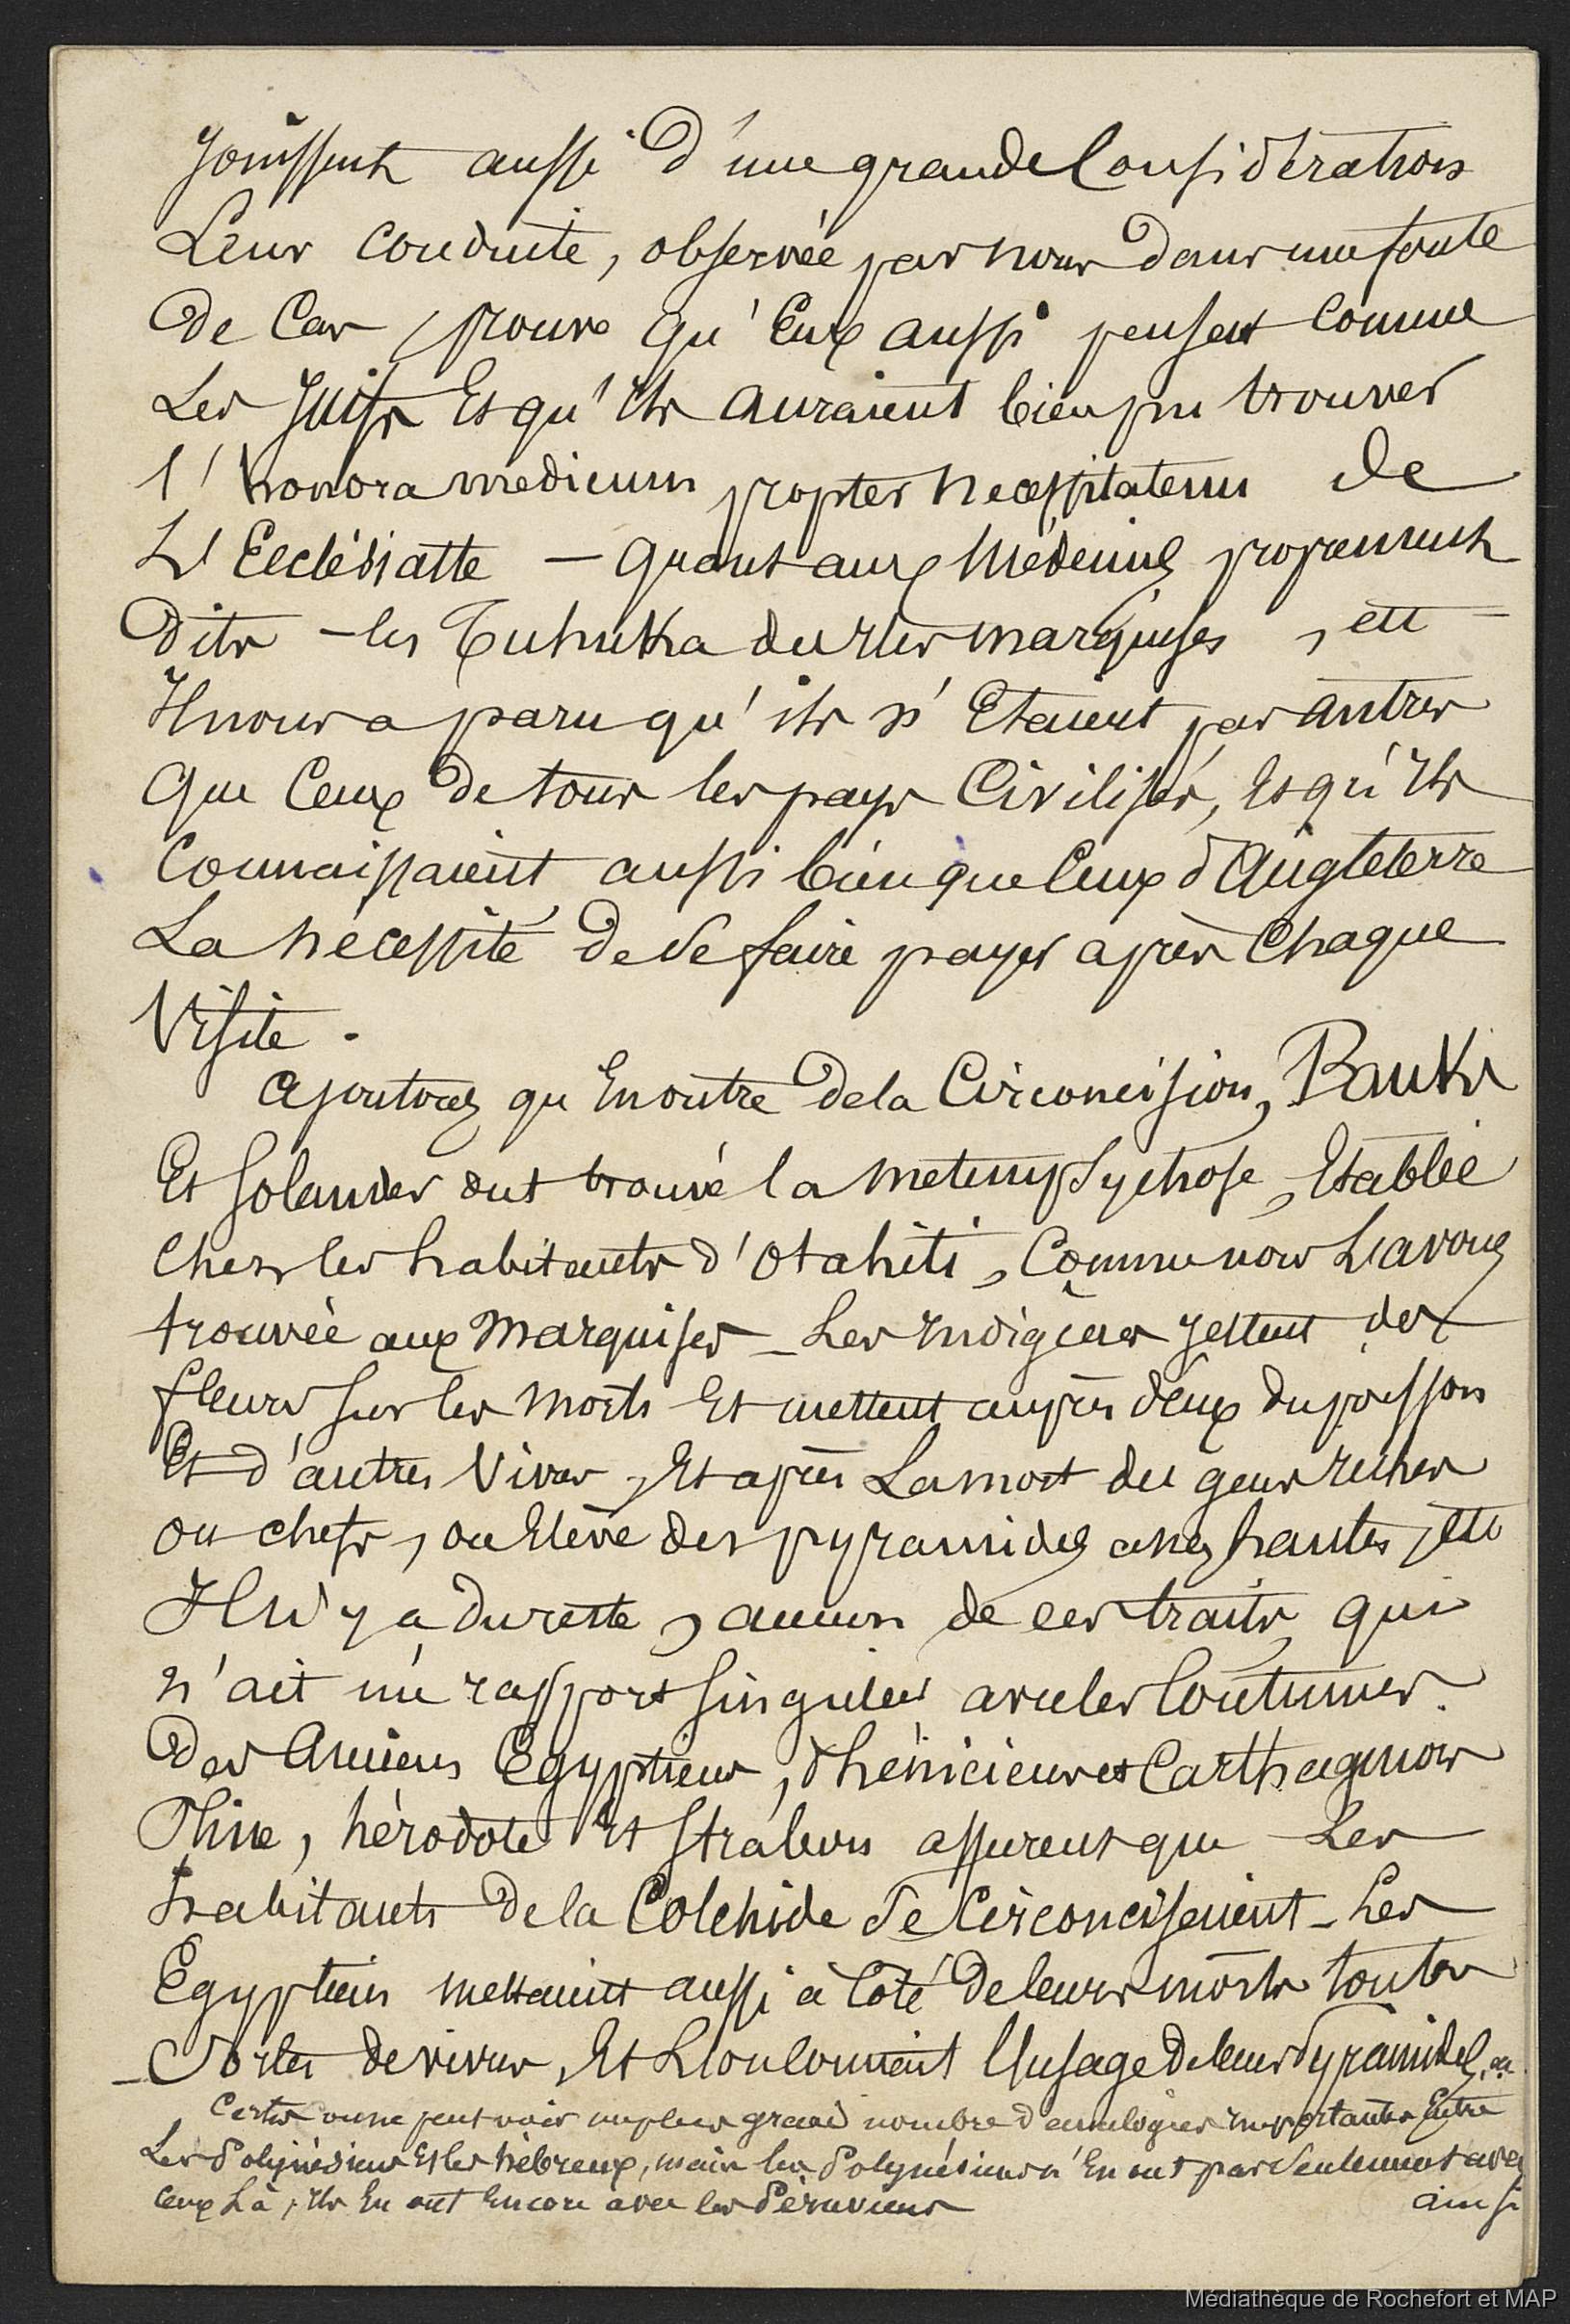 Jouissent aussi d'une grande Considération
Leur conduite, observée par nous dans une foule
de Cas, prouve qu'Eux aussi pensent Comme
Les Juifs Et qu'Ils auraient bien pu trouver
l'honora medicum propter necessitatem de
L'Ecclésiatte — quant aux Médecins proprement
dits — les Tuhuka des Iles marquises, ett
Il nous a paru qu'ils n'Etaient pas autres
que Ceux de tous les pays Civilisés, Et qu'Ils
Connaissaient aussi bien que Ceux d'Angleterre
La nécessité de se faire payer après Chaque
Visite.
Ajoutons qu'En outre de la Circoncision, Banks
Et Solander ont trouvé la metempsychose, Etablie
Chez les habitants d'Otahiti, Comme nous L'avons
trouvée aux Marquises — Les Indigènes jettent des
fleurs sur les morts Et mettent auprès d'eux du poisson
Et d'autres Vivres, Et après La mort des gens riches
ou chefs, on Elève des pyramides assez hautes, ett
Il n'y a du reste, aucun de ces traits, qui
n'ait un rapport singulier avec les Coutumes
Des Anciens Egyptiens, Phéniciens et Carthaginois
Pline, hérodote Et Strabon assurent que Les
habitants de la Colchide se Circoncisaient — Les
Egyptiens mettaient aussi à Coté de leurs morts toutes
Sortes de vivres, Et L'on Connait l'usage de leurs Pyramides,
Certes on ne peut voir un plus grand nombre d'analogies Importantes Entre
Les Polynésiens Et les hébreux, mais les Polynésiens n'En ont pas Seulement avec
Ceux Là, Ils En ont Encore avec les Péruviens
ainsi
Médiathèque de Rochefort et MAP